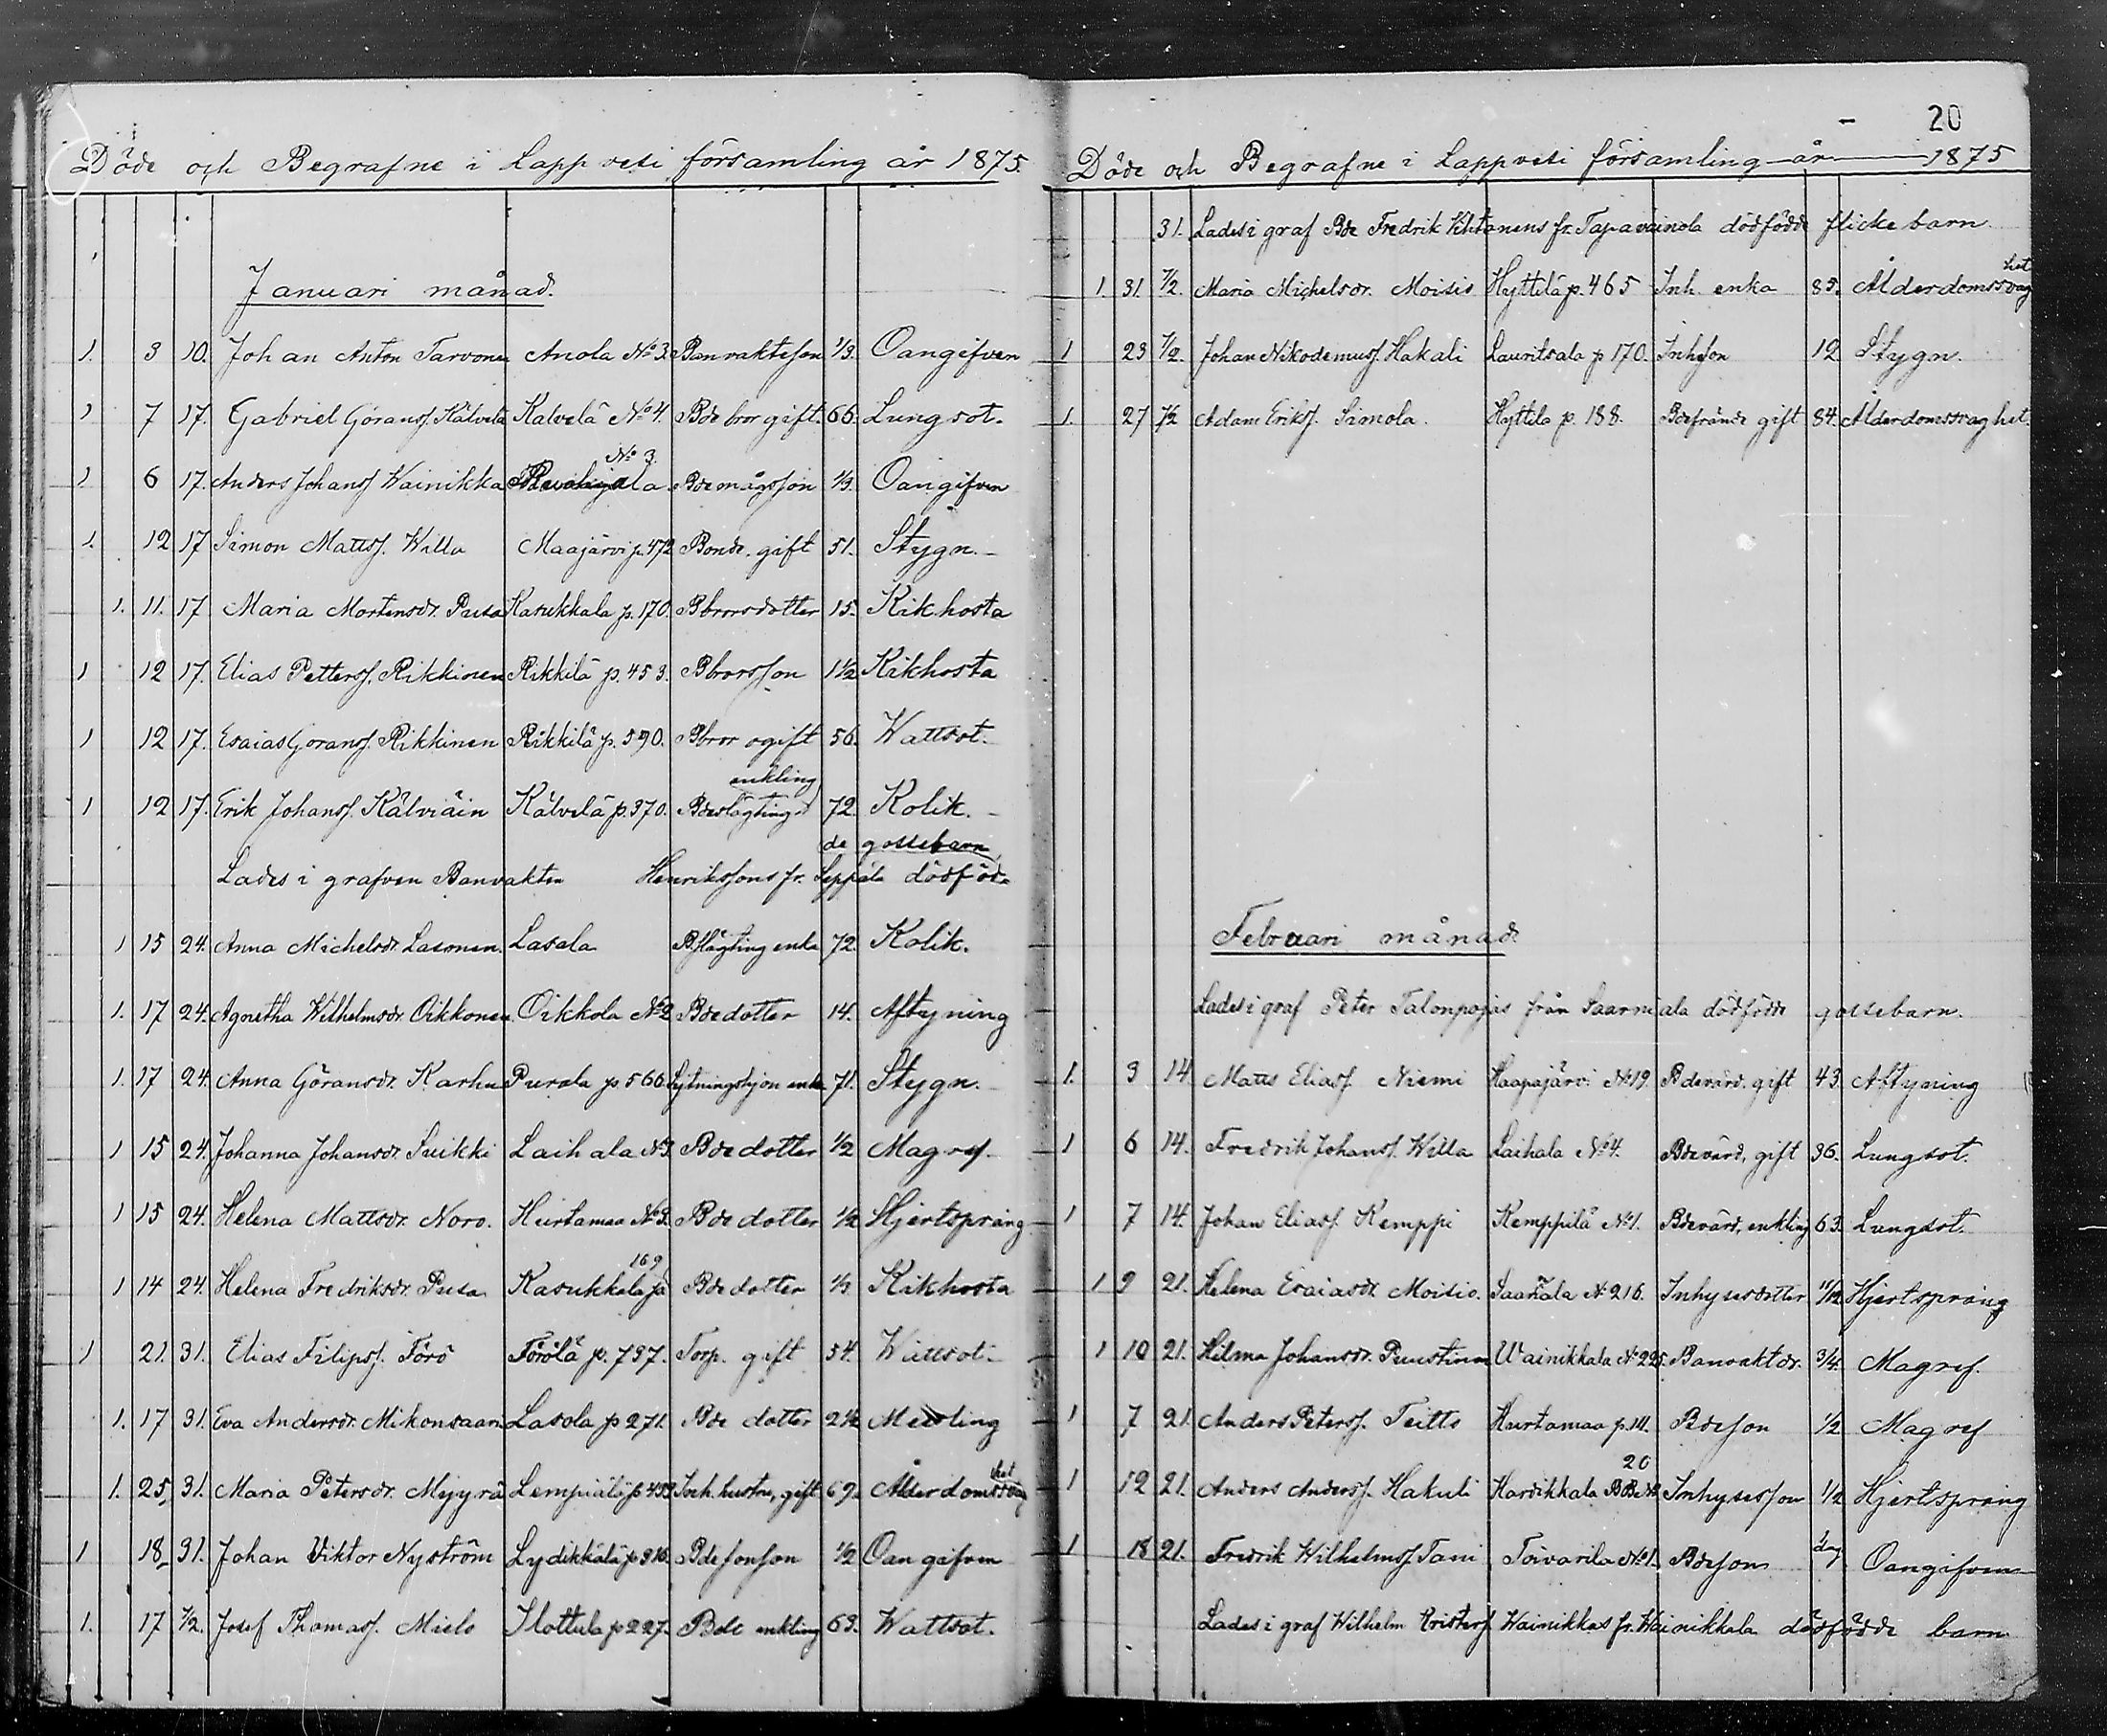 Döde och Begrafne i Lappvesi församling år 1875.
Januari månad.
1. 3 10. Johan Anton Tarvonen Anola No 3. Banvaktsson 1/3. Oangifven
1 7 17. Gabriel Göranss. Kälvelä Kalvelä No 4. Bde bror gift. 66. Lungsot.
No 3.
1 6 17. Anders Johanss Wainikka Bdemågsson 1/3. Oangifven
1. 12 17 Simon Mattss. Willa Maajärvi p. 472 Bonde. gift 51. Stygn.
1. 11. 17 Maria Mortensdr. Pusa Kasukkala p. 170. Bbrorsdotter 15. Kikhosta
1 12 17. Elias Petterss. Rikkinen Rikkilä p. 453. Bbrorsson 1 1/2 Kikhosta
1 12 17. Esaias Göranss. Rikkinen Rikkilä p. 590. Bbror ogift 56. Wattsot.
enkling
1 12 17. Erik Johanss. Kälviäin Kälvelä p. 370. Bdeslägting 72. Kolik.
de gossebarn
Lades i grafven Banvakten Henrikssons fr. Seppälä dödföd
1 15 24. Anna Michelsdr. Lasonen. Lasala Bslägting enka 72. Kolik.
1. 17 24. Agnetha Wilhelmsdr. Oikkonen. Oikkola No 2 Bdedotter 14. Aftyning
1. 17 24. Anna Göransdr. Karhu Purala p 566. Sytningshjon enka 71. Stygn.
1 15 24. Johanna Johansdr. Suikki Laihala No 3. Bdedotter 1/2 Magref.
1 15 24. Helena Mattsdr. Noro. Hurtamaa No 3. Bdedotter 1/2 Hjertsprång
169
1 14 24. Helena Fredriksdr. Pusa Kasukkala pa Bdedotter 1/3 Kikhosta
1 21. 31. Elias Filipss. Törö Törölä p. 797. Torp. gift 54. Wattsot.
1. 17 31. Eva Andersdr. Mikonsaari Lasola p 271. Bde dotter 2 1/2 Messling
het
1. 25, 31. Maria Petersdr. Mejyrä Lempiälä p 453 Inh. hustru, gift 69. Ålderdomssvag
1 18, 31. Johan Viktor Nyström Lydikkälä p 316. Bdesonson 1/2 Oangifven
1. 17 7/2. Josef Thomass. Mielo Ilottula p 227. Bde enkling 63. Wattsot.
20
Döde och Begrafne i Lappvesi församling år 1875
31. Lades i graf Bde Fredrik Vihtanens fr. Tapavainola dödfödde flickebarn.
het
1. 31. 7/2. Maria Michelsdr. Moisio Hyttilä p. 465 Inh. enka 85. Ålderdomssvag
1 23 7/2. Johan Nikodemuss. Hakali Lauritsala p 170. Inhson 12. Stygn.
1. 27 7/2 Adam Erikss. Simola. Hyttila p. 188. Bdefrände gift 84. Ålderdomssvaghet.
Februari månad.
Lades i graf Peter Talonpojas från Saarniala dödfödde gossebarn.
1. 3 14 Matts Eliass. Niemi Haapajärvi No 19. Bdevärd. gift 43. Aftyning
1 6 14. Fredrik Johanss. Willa Laihala No 4. Bdevärd, gift 36. Lungsot.
1 7 14. Johan Eliass. Kemppi Kemppilä No 1. Bdevärd, enkling 63. Lungsot.
1 9 21. Helena Esaiasdr. Moisio. No 216. Inhysesdotter 11/12 Hjertsprång
1 10 21. Hilma Johansdr. Puustinen Wainikkala No 225. Banvaktdr. 3/4. Magref.
1 7 21. Anders Peterss. Teitto Hurtamaa p. 111. Bdeson 1/2 Magref
20
1 12 21. Anders Anderss. Hakuli Hardikkala Inhysesson 1/2 Hjertsprång
1 18 21. Fredrik Wilhelmss Tani Toivarila No 1. Bdeson 1 dag Oangifven
Lades i graf Wilhelm Kristerss. Wainikkas fr. Wainikkala dödfödde barn